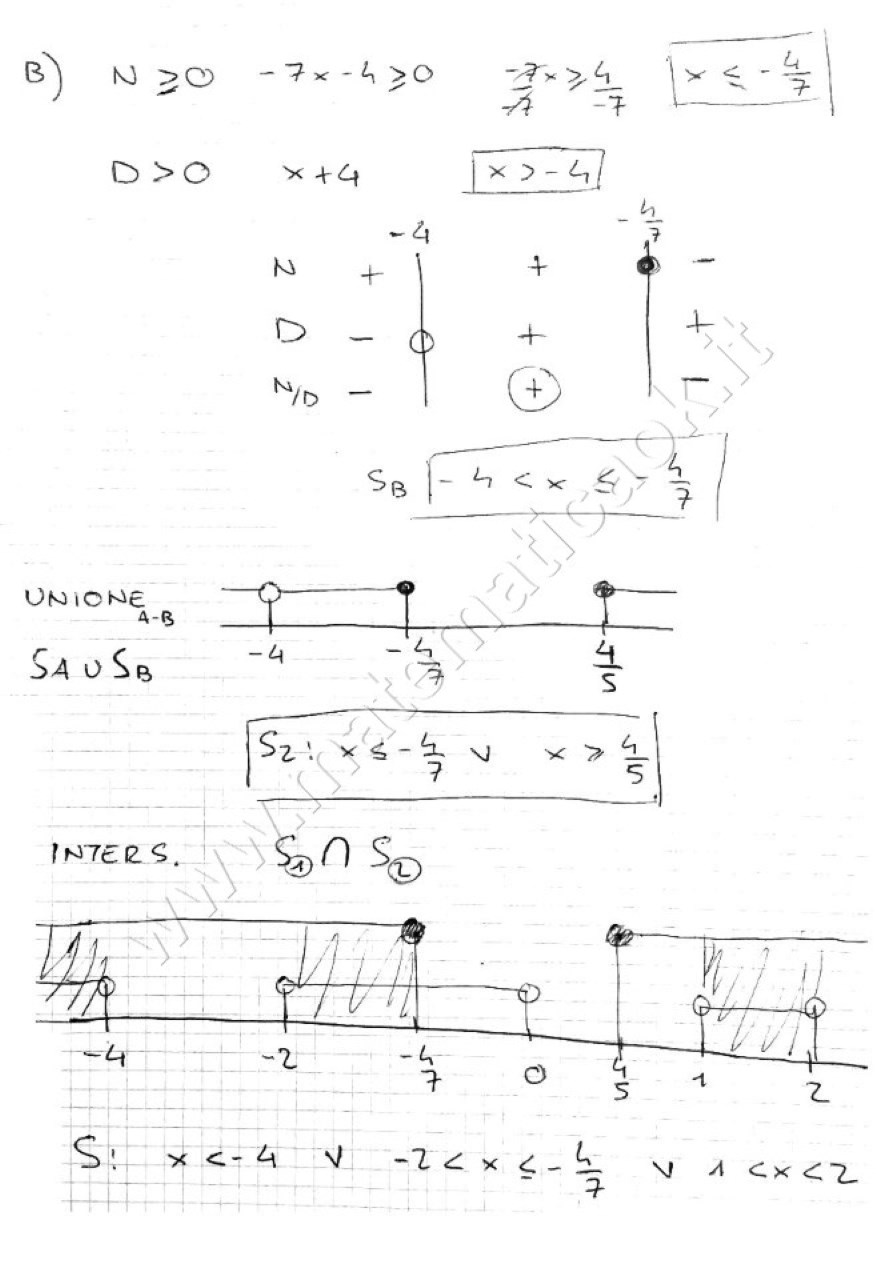 B) N ≥ 0 -7x-4 ≥ 0 -7/-7 x ≥ 4/-7 x ≤ -4/7
D > 0 x+4 x > -4
-4 -4/7
N + + -
D - + +
N/D - + -
SB -4 < x ≤ -4/7
UNIONE A-B
-4 -4/7 4/5
SA ∪ SB
S2: x ≤ -4/7 ∨ x ≥ 4/5
INTERS. S1 ∩ S2
-4 -2 -4/7 0 4/5 1 2
S: x < -4 ∨ -2 < x ≤ -4/7 ∨ 1 < x < 2
www.matematicaok.it